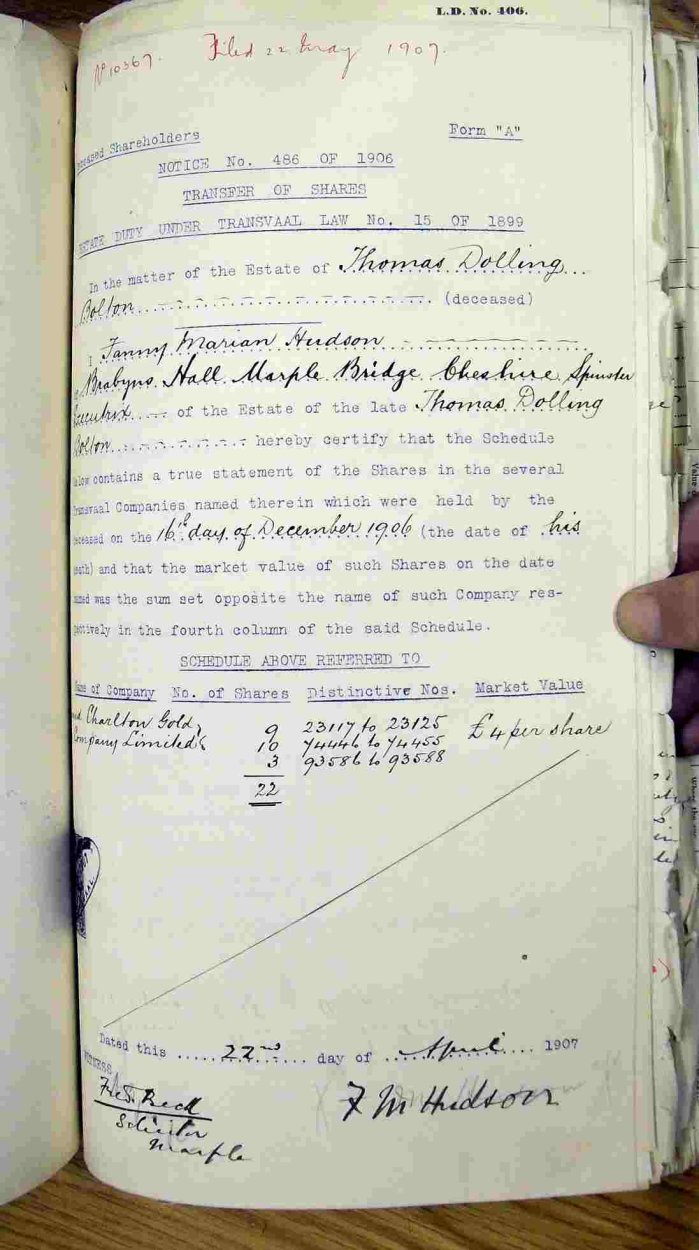 L.D. No. 406.
No 10367. Filed 22 May 1907.
Form "A"
Shareholders
NOTICE No. 486 OF 1906
TRANSFER OF SHARES
ESTATE DUTY UNDER TRANSVAAL LAW No. 15 OF 1899
In the matter of the Estate of Thomas Dolling
Bolton (deceased)
I Fanny Marian Hudson
Brabyns Hall Marple Bridge Cheshire Spinster
Executrix of the Estate of the late Thomas Dolling
Bolton hereby certify that the Schedule
contains a true statement of the Shares in the several
Transvaal Companies named therein which were held by the
on the 16th day of December 1906 (the date of his
and that the market value of such Shares on the date
was the sum set opposite the name of such Company res-
pectively in the fourth column of the said Schedule.
SCHEDULE ABOVE REFERRED TO
of Company No. of Shares Distinctive Nos. Market Value
Charlton Gold 9 23117 to 23125 £4 per share
Company Limited 10 74446 to 74455
3 93586 to 93588
22
Dated this 22nd day of April 1907
WITNESS
Fred. Beck F M Hudson
Solicitor
Marple